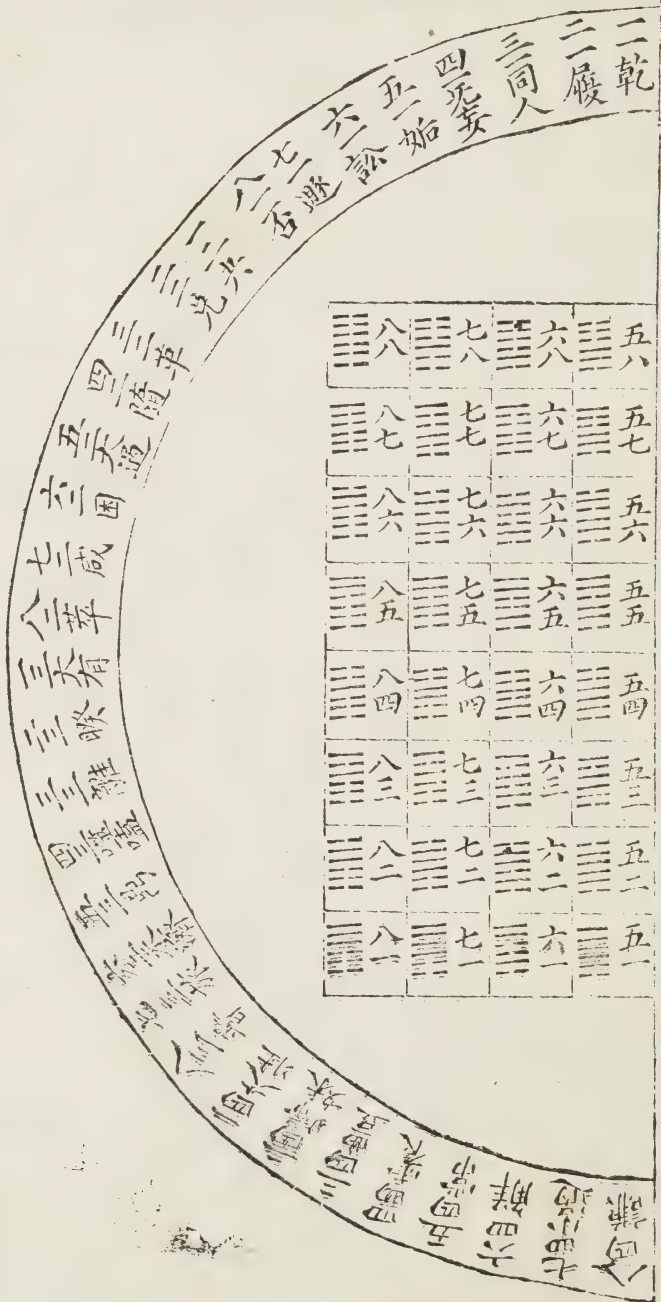 一一乾
二一履
三一同人
四一无妄
五一姤
六一訟
七一遯
八一否
一二夬
二二兌
三二革
四二隨
五二大過
六二困
七二咸
八二萃
一三大有
二三睽
三三離
四三噬嗑
五三鼎
六三未濟
七三旅
八三晉
一四大壯
二四歸妹
三四豐
四四震
五四常
六四解
七四小過
八四
五八 六八 七八 八八
五七 六七 七七 八七
五六 六六 七六 八六
五五 六五 七五 八五
五四 六四 七四 八四
五三 六三 七三 八三
五二 六二 七二 八二
五一 六一 七一 八一